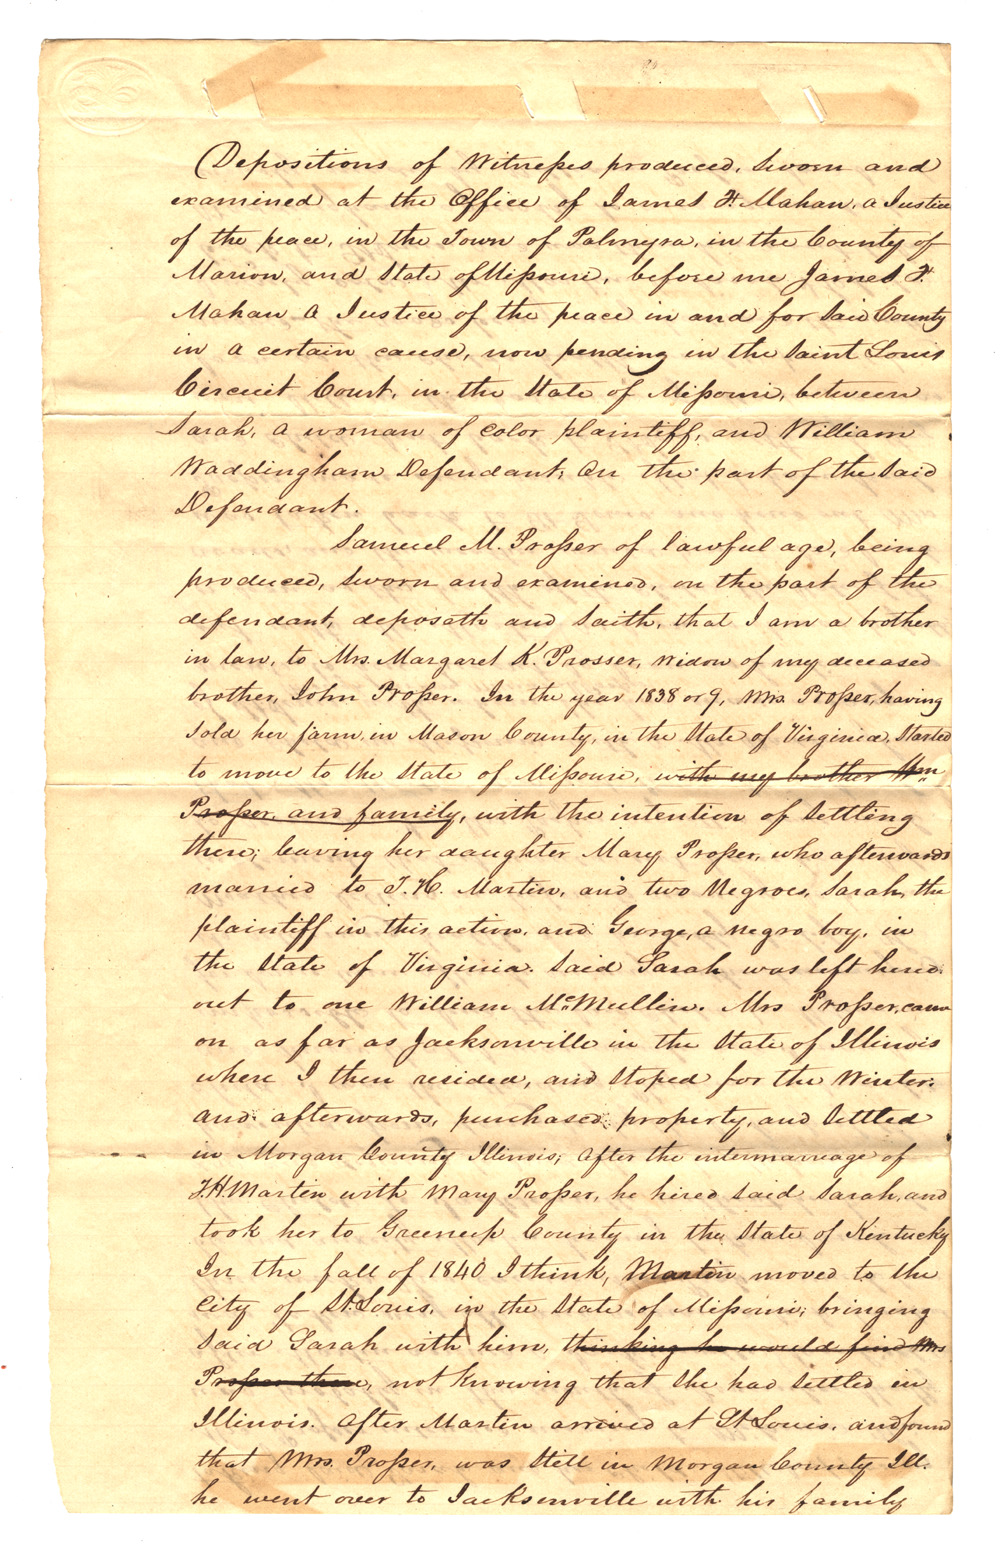 Depositions of Witnesses produced, Sworn and
examined at the Office of James F. Mahan, a Justice
of the peace, in the Town of Palmyra, in the County of
Marion, and State of Missouri, before me James F.
Mahan a Justice of the peace in and for Said County
in a certain cause, now pending in the Saint Louis
Circuit Court, in the State of Missouri, between
Sarah, a woman of color plaintiff, and William
Waddingham Defendant; On the part of the Said
Defendant.
Samuel M. Prosser of lawful age, being
produced, Sworn and examined, on the part of the
defendant, deposeth and Saith, that I am a brother
in law, to Mrs. Margaret K. Prosser, Widow of my deceased
brother, John Prosser. In the year 1838 or 9, Mrs. Prosser, having
Sold her farm, in Mason County, in the State of Virginia, Started
to move to the State of Missouri, with my brother Wm
Prosser and family, with the intention of Settling
there; leaving her daughter Mary Prosser, who afterwards
married to T. H. Martin, and two Negroes, Sarah, the
plaintiff in this action, and George, a negro boy, in
the State of Virginia. Said Sarah was left hired
out to one William McMullin. Mrs Prosser, came
on as far as Jacksonville in the State of Illinois
where I then resided, and Stoped for the Winter.
and afterwards, purchased property, and Settled
in Morgan County Illinois; After the intermarriage of
T. H. Martin with Mary Prosser, he hired Said Sarah, and
took her to Greenup County in the State of Kentucky
In the fall of 1840 I think, Martin moved to the
City of St. Louis, in the State of Missouri; bringing
Said Sarah with him, thinking he would find Mrs
Prosser there, not Knowing that She had Settled in
Illinois. After Martin arrived at St Louis, and found
that Mrs. Prosser, was Still in Morgan County Ill.
he went over to Jacksonville with his family